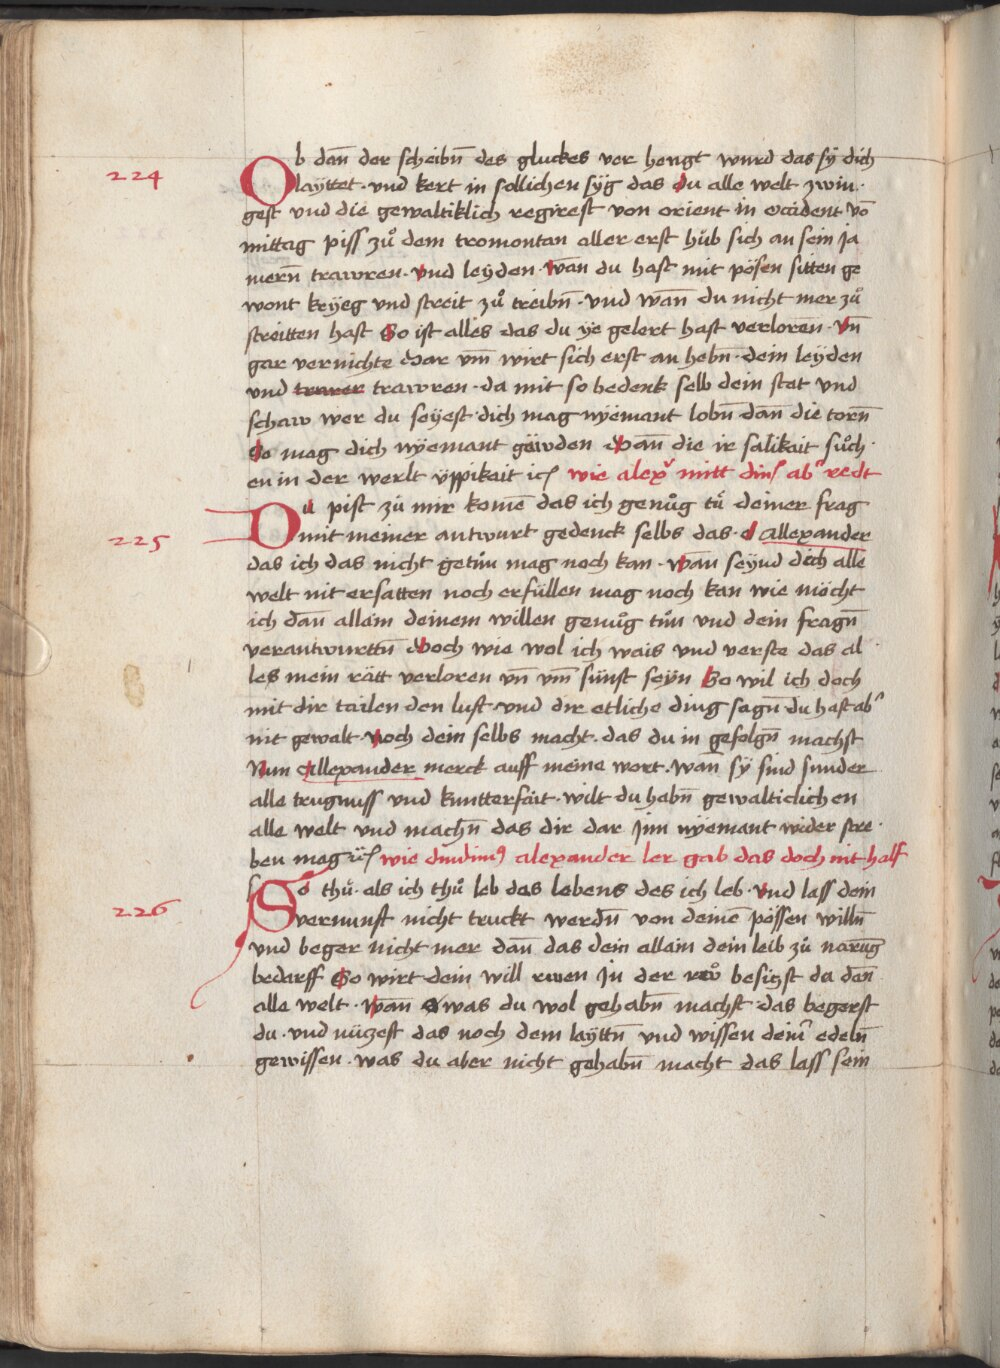 224
Ob dan̄ der scheibn̄ des gluckes ver hengt wurd das sÿ dich
laÿttet · vnd kert in sollichen sÿg das du alle welt zwin·
gest vnd die gewaltiklich regirest von orient in occident vō
mittag piss zuͦ dem tromontan aller erst huͤb sich an sein Ja
mern̄ trawren · vnd leyden · wan̄ du hast mit pösen sitten ge
wont krÿeg vnd streit zuͦ treibn̄ · vnd wan̄ du nicht mer zuͦ
streitten hast So ist alles das du ÿe gelert hast verloren̄ · vn̄
gar vernichte Dar vm̄ wirt sich erst an hebn̄ · dein leÿden
und trawer trawren · da mit so bedenk selb dein stat vnd
schaw wer du seÿest · dich mag nÿemant lobn̄ dan̄ die torn̄
So mag dich nÿemant gäwden Wan̄ die ir salikait suͦch·
en in der werlt ÿppikait ꝛc wie alexr mitt din abr redt
225
Du pist zuͦ mir komē das ich genuͦg tuͤ deiner frag
mit meiner antwurt gedenck selbs das · o allexander
das ich das nicht getuͤn mag noch kan · wan̄ seÿnd dich alle
welt nit ersatten noch erfüllen mag noch kan wie möcht
ich dan̄ allain deinem willen genuͦg tuͦn vnd dein fragn̄
verantwurttn̄ Doch wie wol ich wais vnd verste das al
les mein rätt verloren vn̄ vm̄ sünst seÿn So wil ich doch
mit dir tailen den lust vnd dir etliche ding sagn̄ du hast abr
nit gewalt · noch dein selbs macht · das du in gefolgn̄ machst
Nun Allexander merck auff meine wort · wan̄ sÿ sind sunder
alle trugnuss vnd kuntterfait · wilt du habn̄ gewalticlichen
alle welt vnd machn̄ das dir dar Jnn nÿemant wider stre·
ben mag ꝛc wie dindimus alexander ler gab das doch nit half
226
So thuͤ · als ich thuͦ leb des lebens des ich leb · vnd lass dein
vernunft nicht truckt werdn̄ von deinē pössen willn̄
vnd beger nicht mer dan̄ das dein allain dein leib zuͦ narūg
bedarff So wirt dein will rwen Jn der rwͦ besiczst da dan̄
alle welt · wan̄ was du wol gehabn̄ machst das begerst
du · vnd nüczest das noch dem laÿttn̄ vnd wissen deinr edeln̄
gewissen · was du aber nicht gehabn̄ macht das lass sein